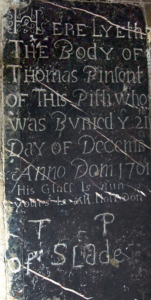 HERE LYETH
THE BODY OF
THOMAS PINSONT
OF THIS Piſh WHO
WAS BURIED Y 21
DAY OF DECEMB
Anno Dom 1701
His Glaſs Is Run
yours Is
T P
of SLADE